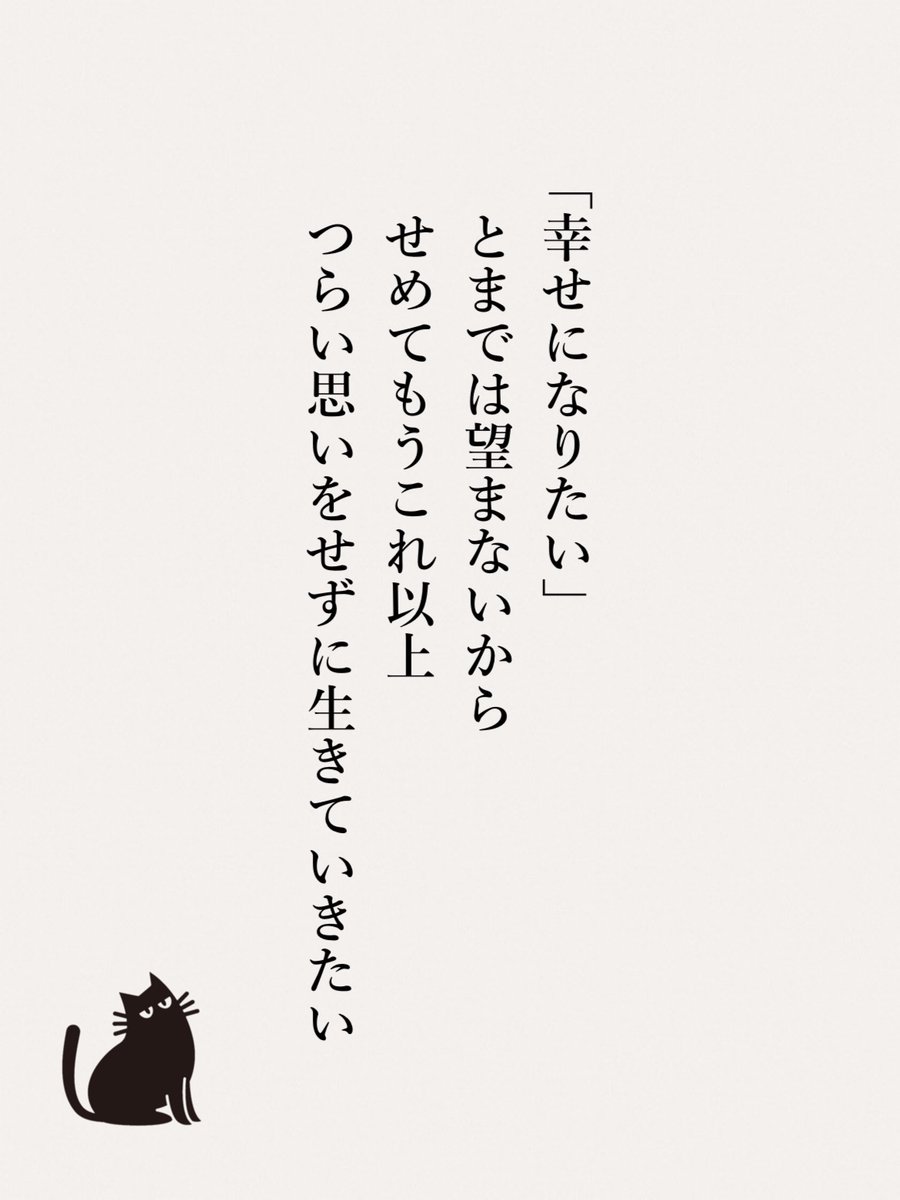 「幸せになりたい」
とまでは望まないから
せめてもうこれ以上
つらい思いをせずに生きていきたい